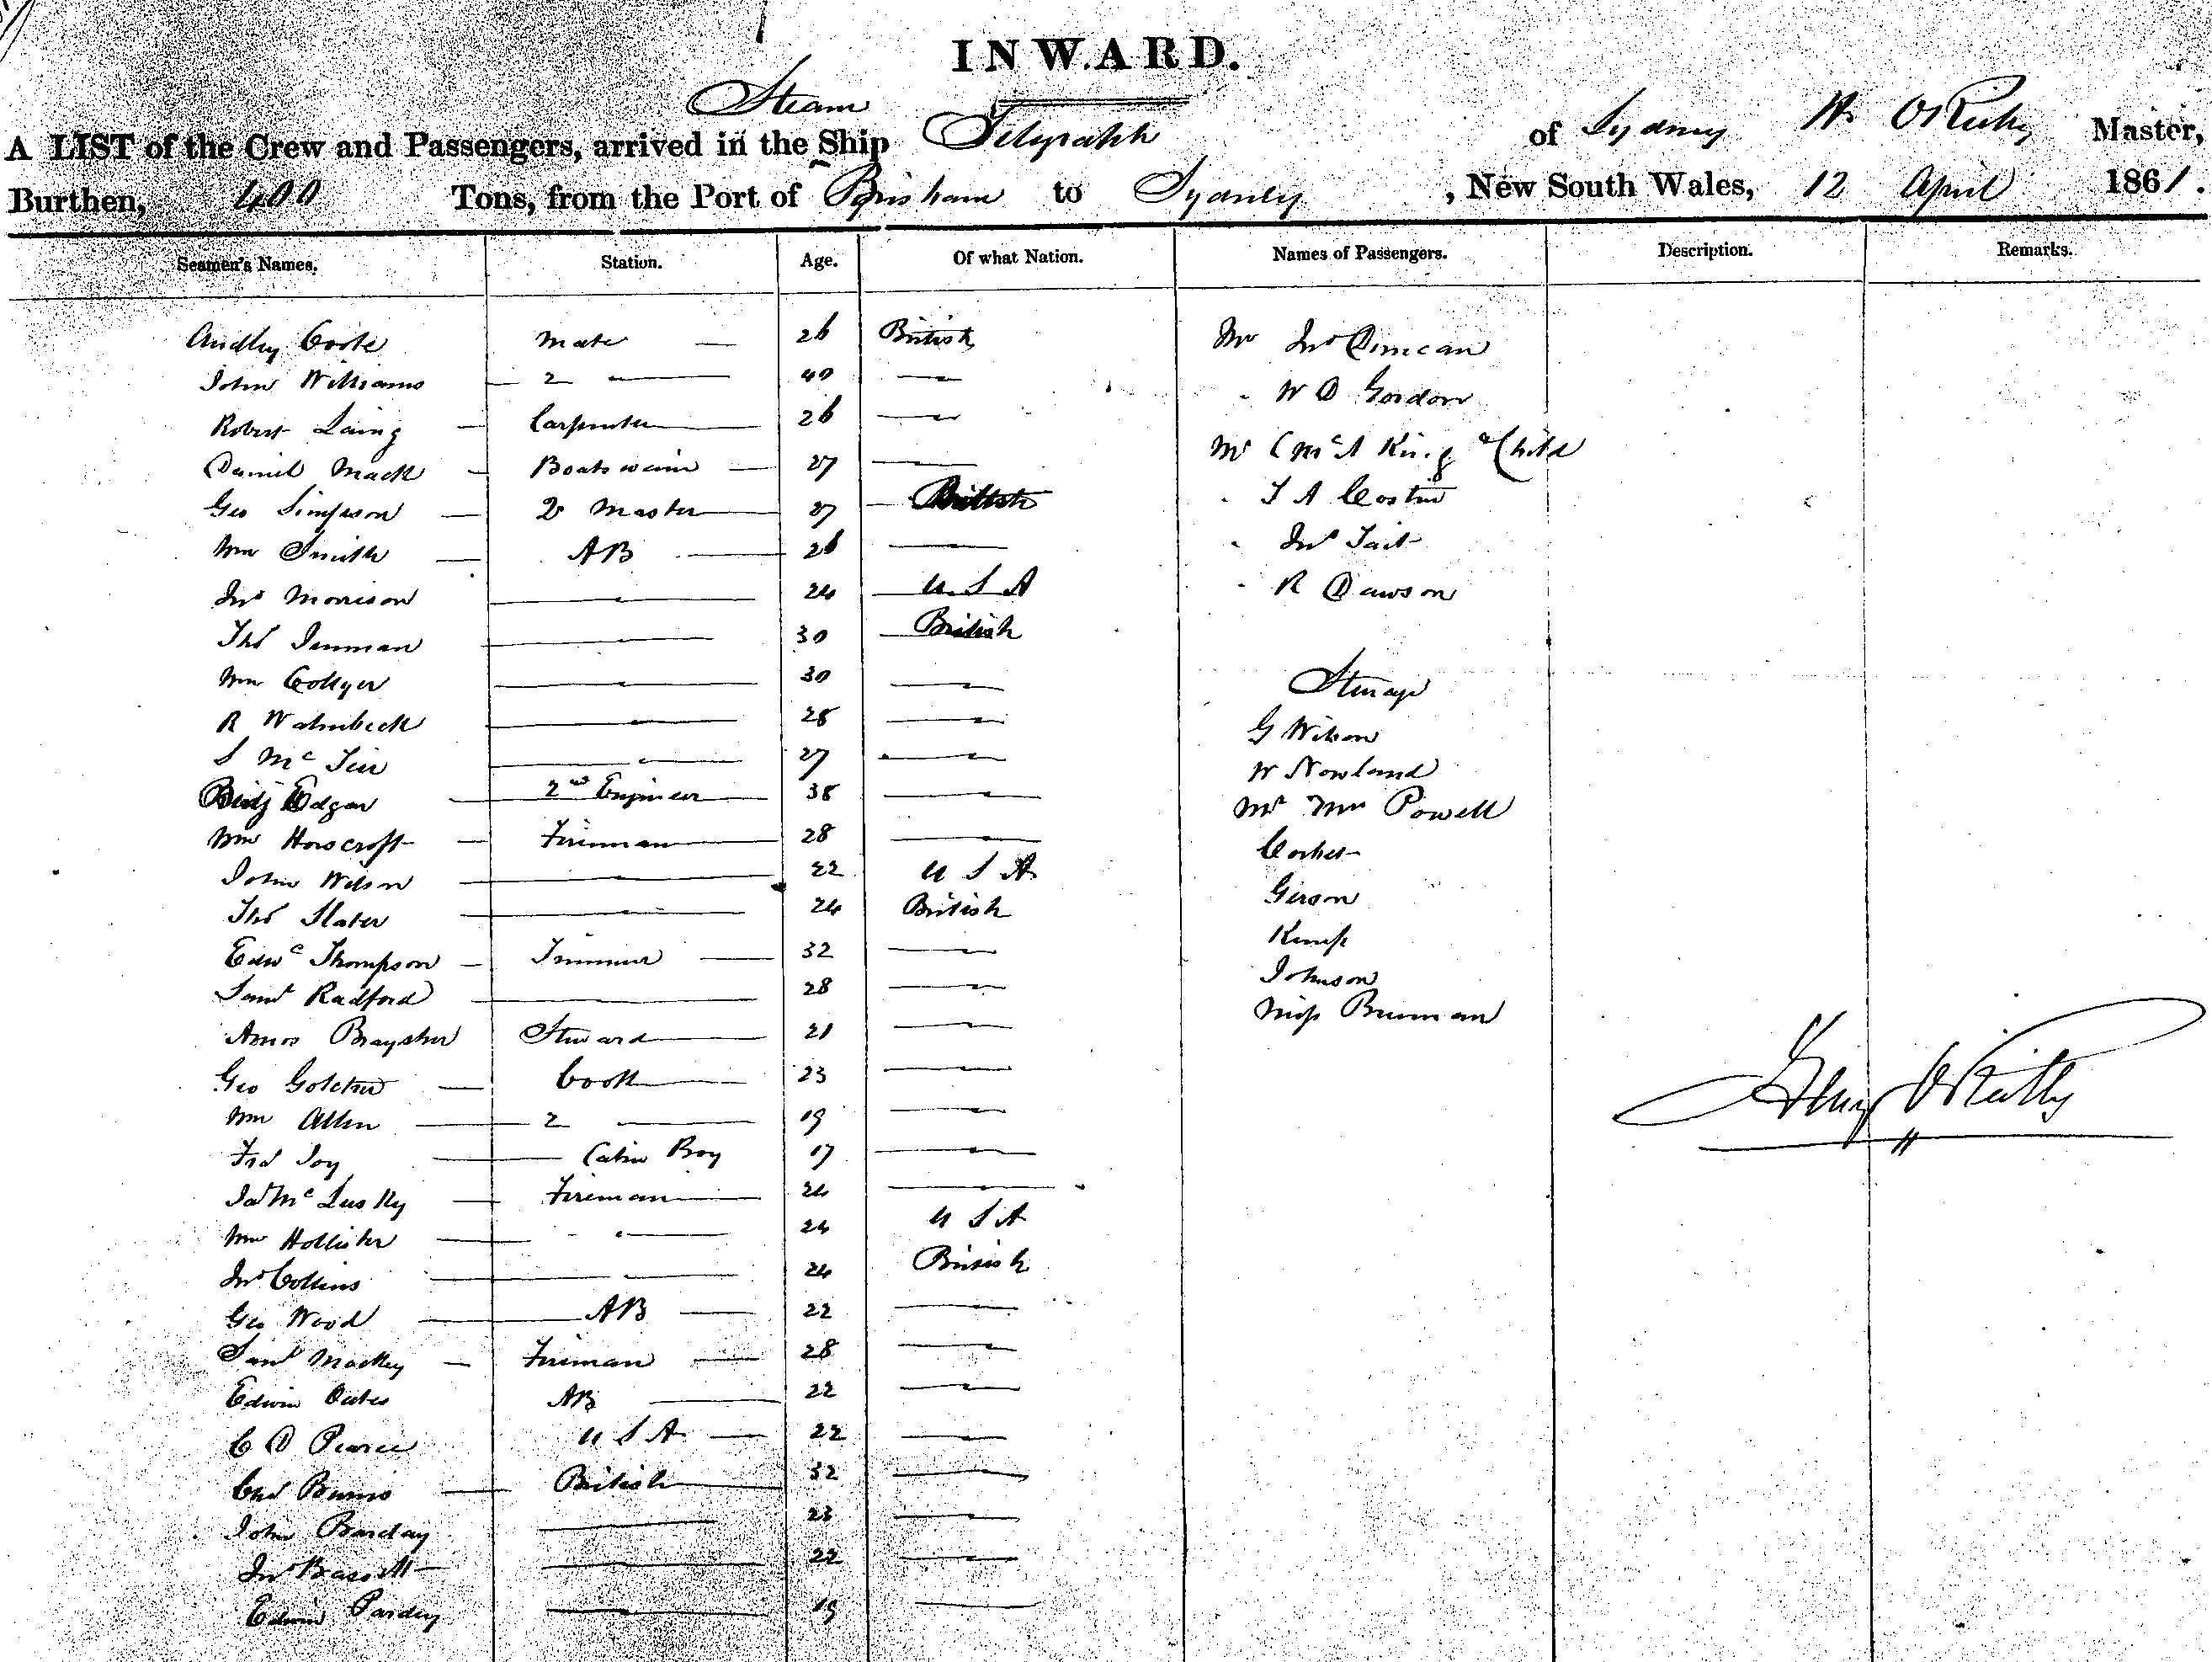 INWARD.
Steam
A LIST of the Crew and Passengers, arrived in the Ship Telegraph of Sydney H. O'Reilly Master,
Burthen, 400 Tons, from the Port of Brisbane to Sydney, New South Wales, 12 April 1861.
Seamen's Names. Station. Age. Of what Nation. Names of Passengers. Description. Remarks.
Audley Coote Mate — 26 British Mr Jno Duncan
John Williams — 2 — 40 — " W D Gordon
Robert Laing — Carpenter — 26 — Mr & Mrs A King & Child
Daniel Mack — Boatswain — 27 —
Geo Simpson — Qr Master — 27 — British " T A Costin
Wm Smith — AB — 26 — " Jno Tait
Jno Morrison — 24 U S A " R Dawson
Thos Denman — 30 British
Wm Collyer — 30 — Steerage
R Walmbeck — 28 — G Wilson
S Mc — 27 — W Nowland
Benj Edgar — 2nd Engineer — 38 — Mr Mrs Powell
Wm Horscroft — Fireman — 28 — Corbet
John Wilson — 22 U S A Gerson
Thos Slater — 24 British Kemp
Edwd Thompson — Trimmer — 32 — Johnson
Saml Radford — 28 — Miss Brennan
Amos Braysher Steward — 21 —
Geo Golcher — Cook — 23 — Henry O'Reilly
Wm Allen — 2 — 19 —
Fred Joy — Cabin Boy 17 —
Jas McLusky — Fireman — 24 —
Wm Hollister — " — 24 U S A
Jno Collins — 24 British
Geo Wood — AB — 22 —
Saml Mackey — Fireman — 28 —
Edwin Oates AB — 22 —
C D Pearce U S A — 22 —
Chas Burns — British — 32 —
John Barclay — 23 —
Jno Bassett — 22 —
Edwin Pardey — 19 —